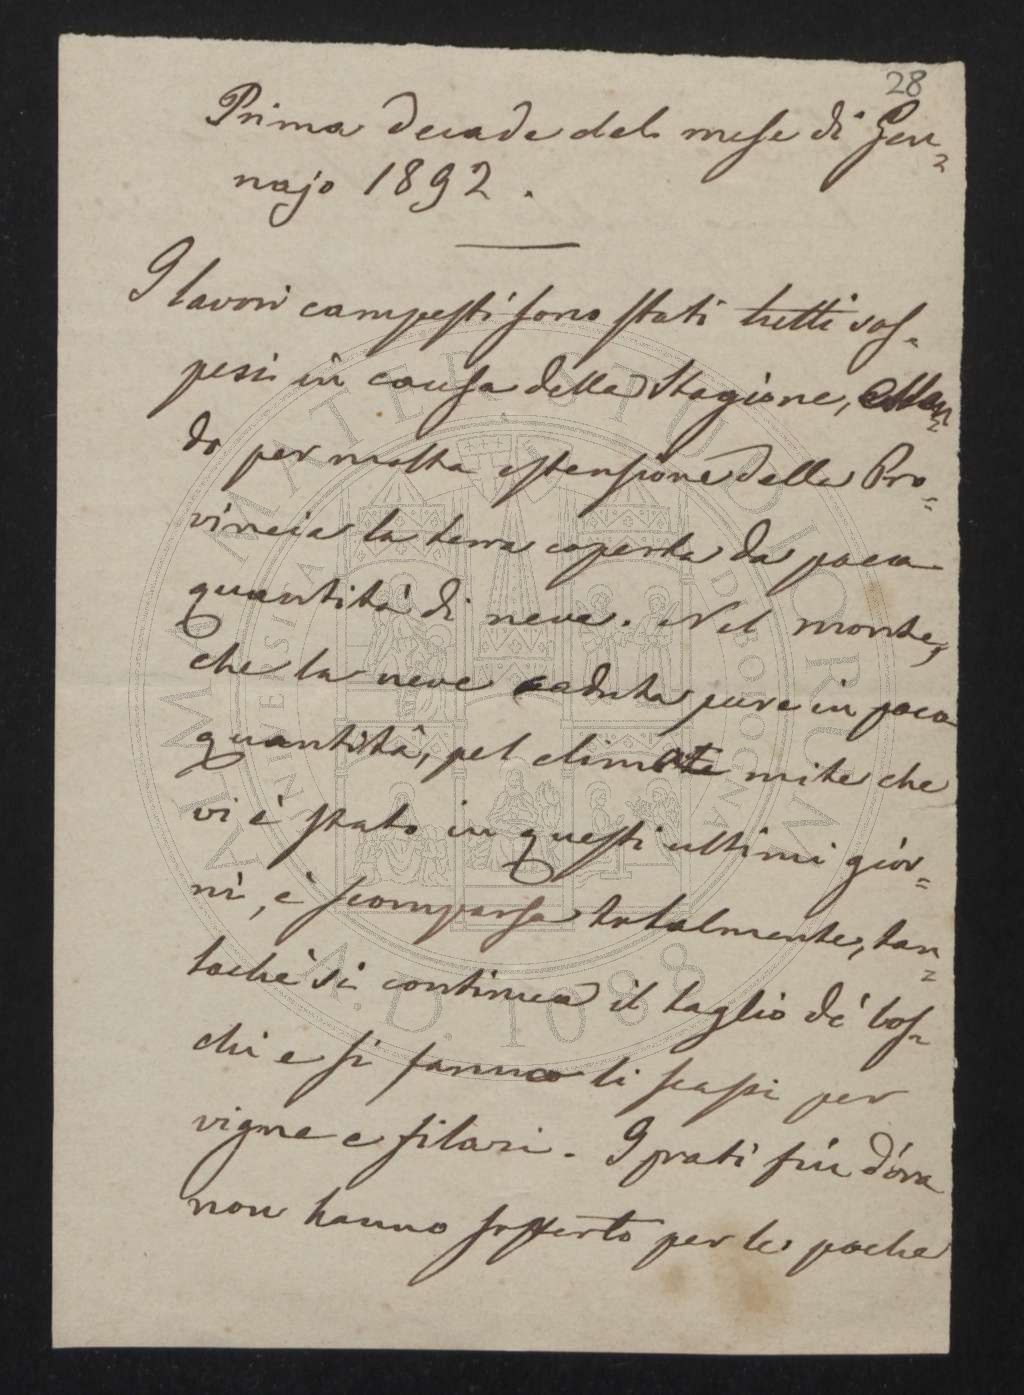 28
Prima decade del mese di Gen=
najo 1892.
I lavori campesti sono stati tutti sos=
pesi in causa della Stagione, essen=
do per molta estensione della Pro=
vincia la terra coperta da poca
quantità di neve. Nel monte,
che la neve caduta pure in poca
quantità, pel climate mite che
vi è stato in questi ultimi gior=
ni, è scomparsa totalmente, tan=
tochè si continua il taglio de' bos=
chi e si fanno li scassi per
vigne e filari. I prati fin d'ora
non hanno sofferto per le poche
ALMA MATER STUDIORUM
UNIVERSITÀ DI BOLOGNA
A.D. 1088